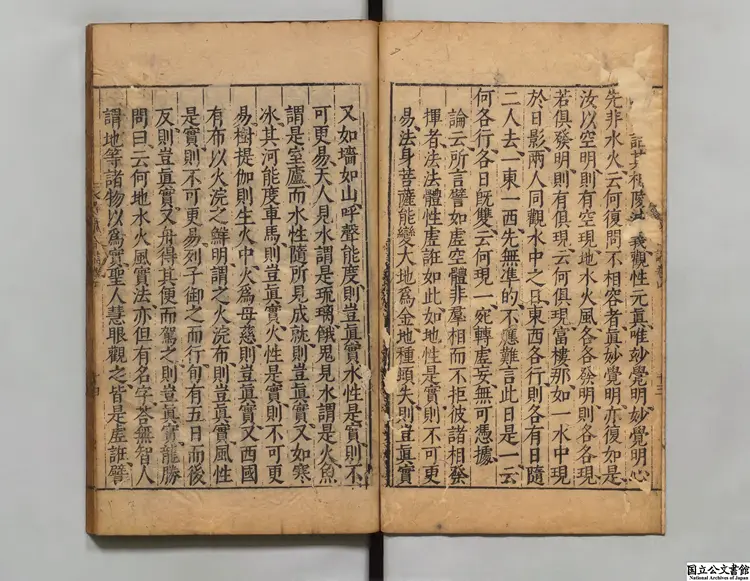 其相陵 觀性元眞唯妙覺明妙覺明心
先非水火云何復問不相容者眞妙覺明亦復如是
汝以空明則有空現地水火風各各發明則各各現
若俱發明則有俱現云何俱現富樓那如一水中現
於日影兩人同觀水中之日東西各行則各有日隨
二人去一東一西先無準的不應難言此日是一云
何各行各日旣雙云何現一宛轉虛妄無可憑據
論云所言譬如虛空體非羣相而不拒彼諸相發
揮者法法體性虛誑如此如地性是實則不可更
易法身菩薩能變大地爲金地種頭失則豈眞實
又如墻如山呼聲能度則豈眞實水性是實則不
可更易天人見水謂是琉璃餓鬼見水謂是火魚
謂是室廬而水性隨所見成就則豈眞實又如寒
氷其河能度車馬則豈眞實火性是實則不可更
易樹提伽則生火中火爲母慈則豈眞實又西國
有布以火浣之鮮明謂之火浣布則豈眞實風性
是實則不可更易列子御之而行旬有五日而後
反則豈眞實又舟得其便而駕之則豈眞實龍勝
問曰云何地水火風實法亦但有名字答無智人
謂地等諸物以爲實聖人慧眼觀之皆是虛誑譬
国立公文書館
National Archives of Japan